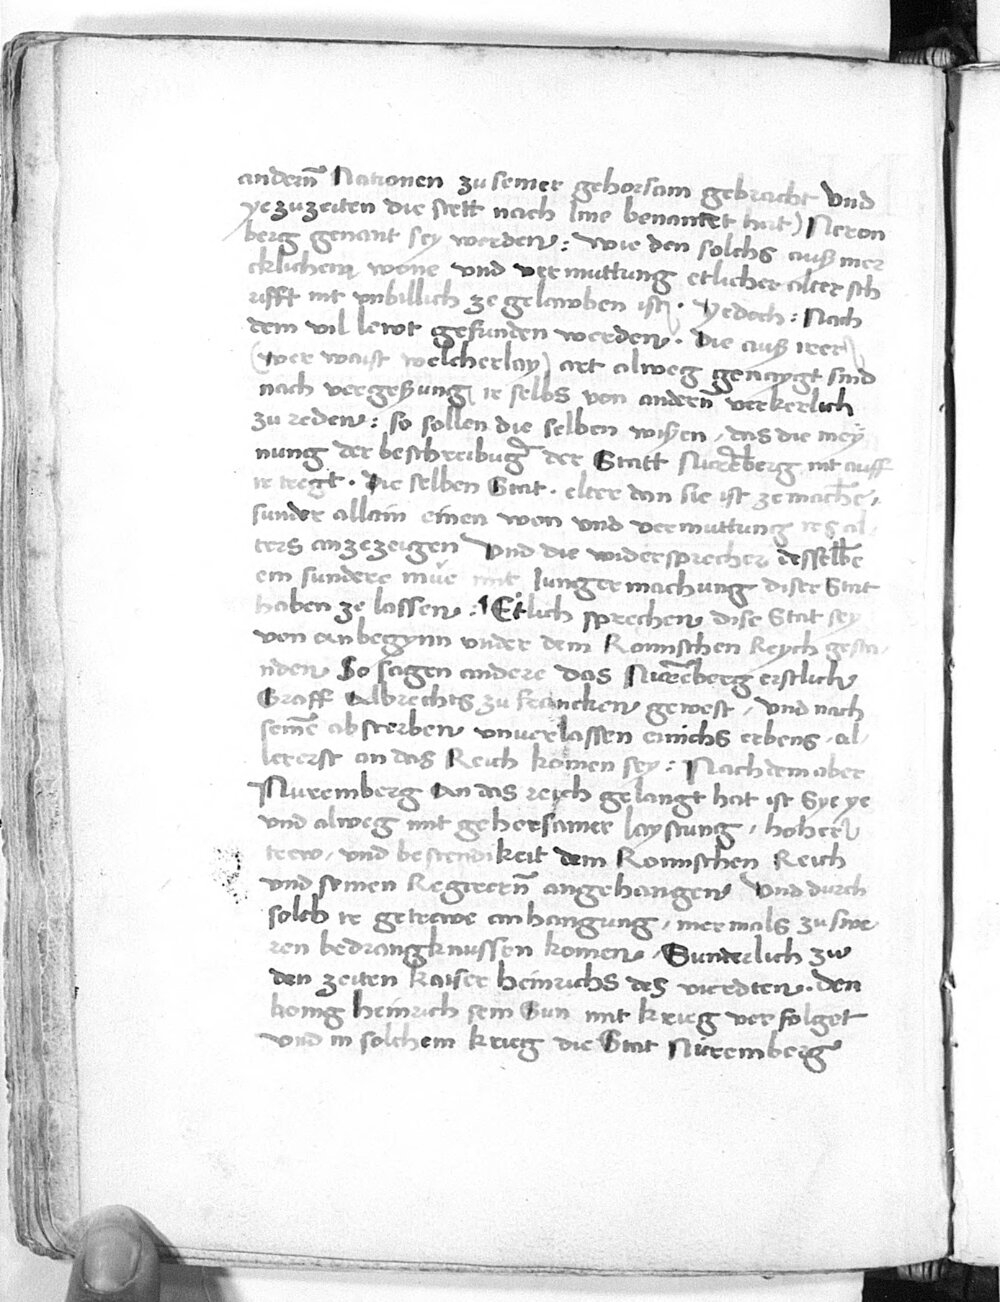 andern̄ Nationen zu seiner gehorsam gebracht vnd
ye zuzeiten die stett nach Ime benantet hat) Neron
berg genant sey worden : Wie den solchs auß mer
cklichem wone vnd vermuttung etlicher alter sch
rifft nit vnbillich ze gelawben ist . Yedoch : Nach
dem vil lewt gefunden werden . Die auß irer
(wer waist welcherlay) art alweg genaygt sind
nach vergeßung ir selbs von andern̄ verkerlich
zu reden : so sollen die selben wißen , das die mey
nung der beschreibūg der Statt Nurēberg nit auff
ir tregt . die selben Stat . elter dan sie ist ze mach̄e ,
sunder allain einen won vnd vermuttung irs al
ters anzezeigen Vnd die widersprecher desselb̄e
ein sundere mūe mit Junger machung diser Stat
haben ze lassen : Etlich sprechen dise Stat sey
von anbegynn vnder dem Romischen Reych gesta
nden So sagen andere das Nurēberg erstlich
Graff Albrechts zu francken gewest , vnd nach
seinē absterben vnuerlassen einichs erbens , al
lererst an das Reich komen sey : Nach dem aber
Nuremberg An das reich gelangt hat ist Sye ye
vnd alweg mit gehorsamer laystung , hoher
trew , vnd bestendikeit dem Romischen Reich
vnd seinen Regirern̄ angehangen Vnd durch
solch ir getrewe anhangung , mermals zu swe
ren bedrangknussen komen , Sunderlich zw
den zeiten kaiser heinrichs des vierdten . den
konig heinrich sein Sun mit krieg verfolget
vnd in solchem krieg die Stat Nuremberg